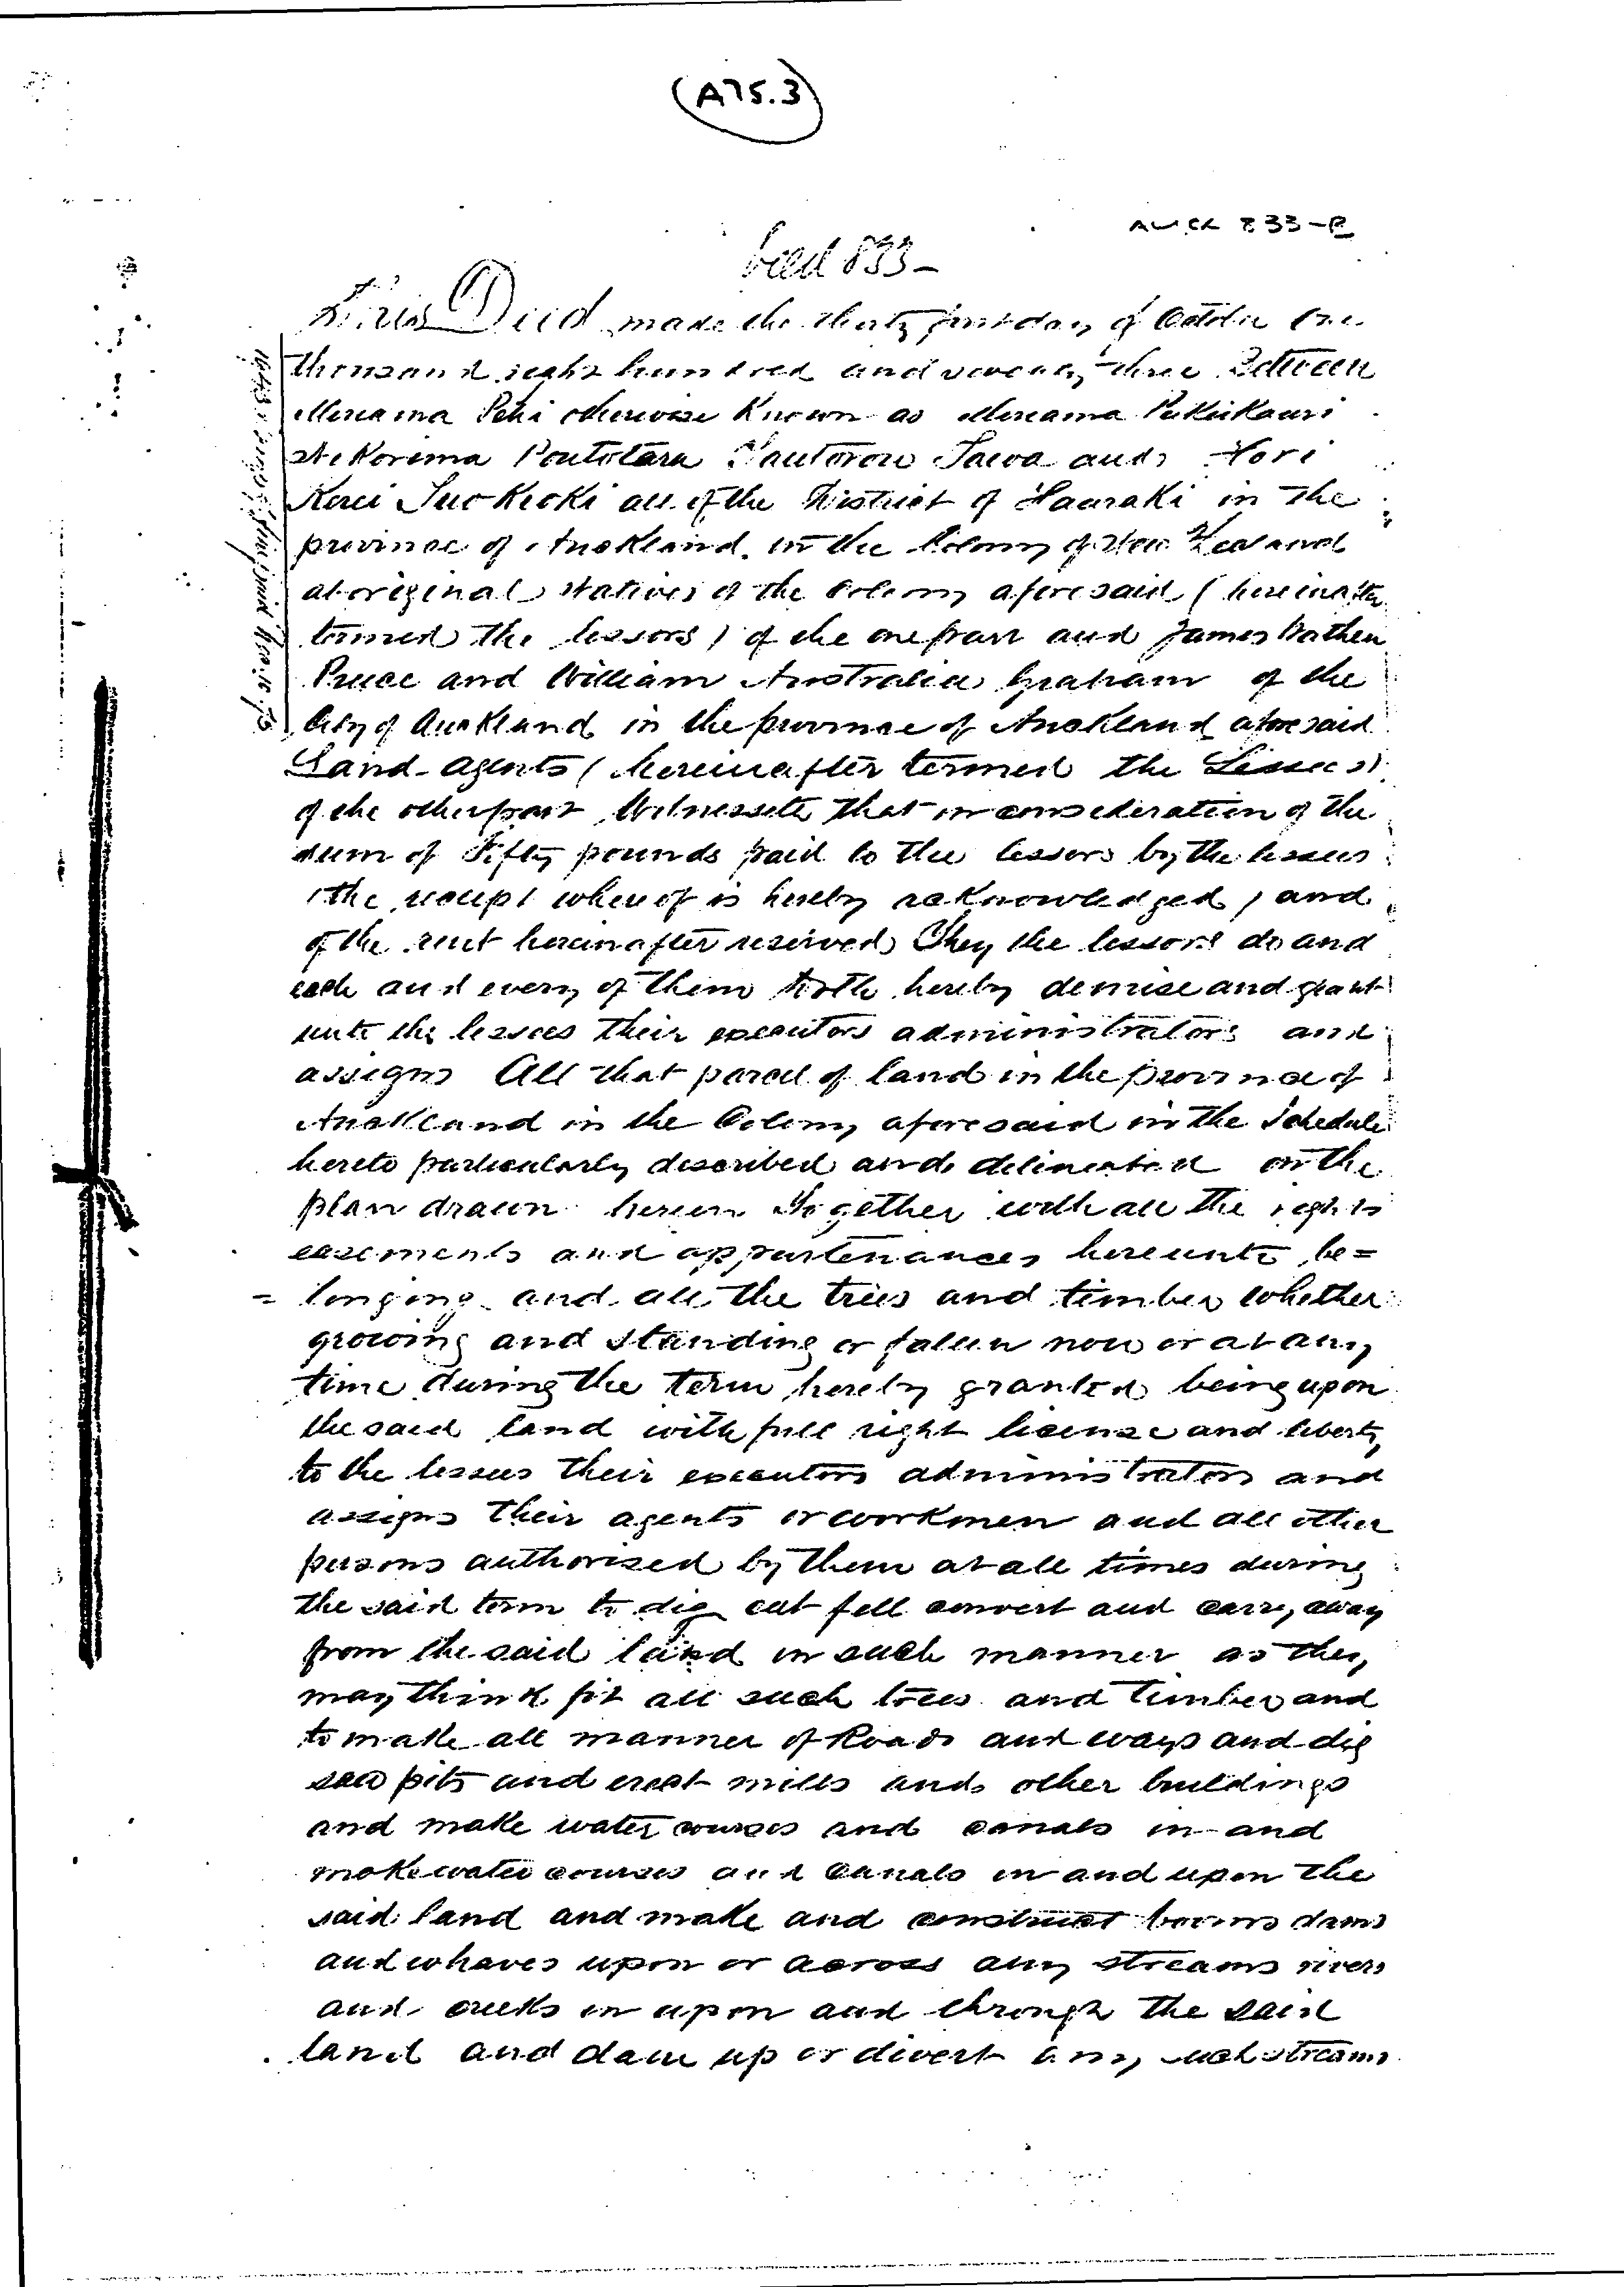 (A75.3)
AUCK 833-P
Deed 833-
This Deed made the thirty first day of October One
thousand eight hundred and seventy three Between
Mereama Pehi otherwise Known as Mereama Pukukauri
Nekorima Poutotara Tautoron Tawa and Hori
Kerei all of the District of Hauraki in the
province of Auckland in the Colony of New Zealand
aboriginal Natives of the Colony aforesaid (hereinafter
termed the lessors) of the one part and James Nathen
Preece and William Australia Graham of the
City of Auckland in the province of Auckland aforesaid
Land-agents (hereinafter termed the Lessees)
of the other part Witnesseth that in consideration of the
sum of Fifty pounds paid to the lessors by the lessees
(the receipt whereof is hereby acknowledged) and
of the rent hereinafter reserved They the lessors do and
each and every of them doth hereby demise and grant
unto the lessees their executors administrators and
assigns All that parcel of land in the province of
Auckland in the Colony aforesaid in the Schedule
hereto particularly described and delineated on the
plan drawn hereon Together with all the rights
easements and appurtenances hereunto be=
=longing and all the trees and timber whether
growing and standing or fallen now or at any
time during the term hereby granted being upon
the said land with full right license and liberty
to the lessees their executors administrators and
assigns their agents or workmen and all other
persons authorised by them at all times during
the said term to dig cut fell convert and carry away
from the said land in such manner as they
may think fit all such trees and timber and
to make all manner of Roads and ways and dig
saw pits and erect mills and other buildings
and make water courses and canals in and
make water courses and canals in and upon the
said land and make and construct booms dams
and whaves upon or across any streams rivers
and creeks in upon and through the said
land and dam up or divert any such streams